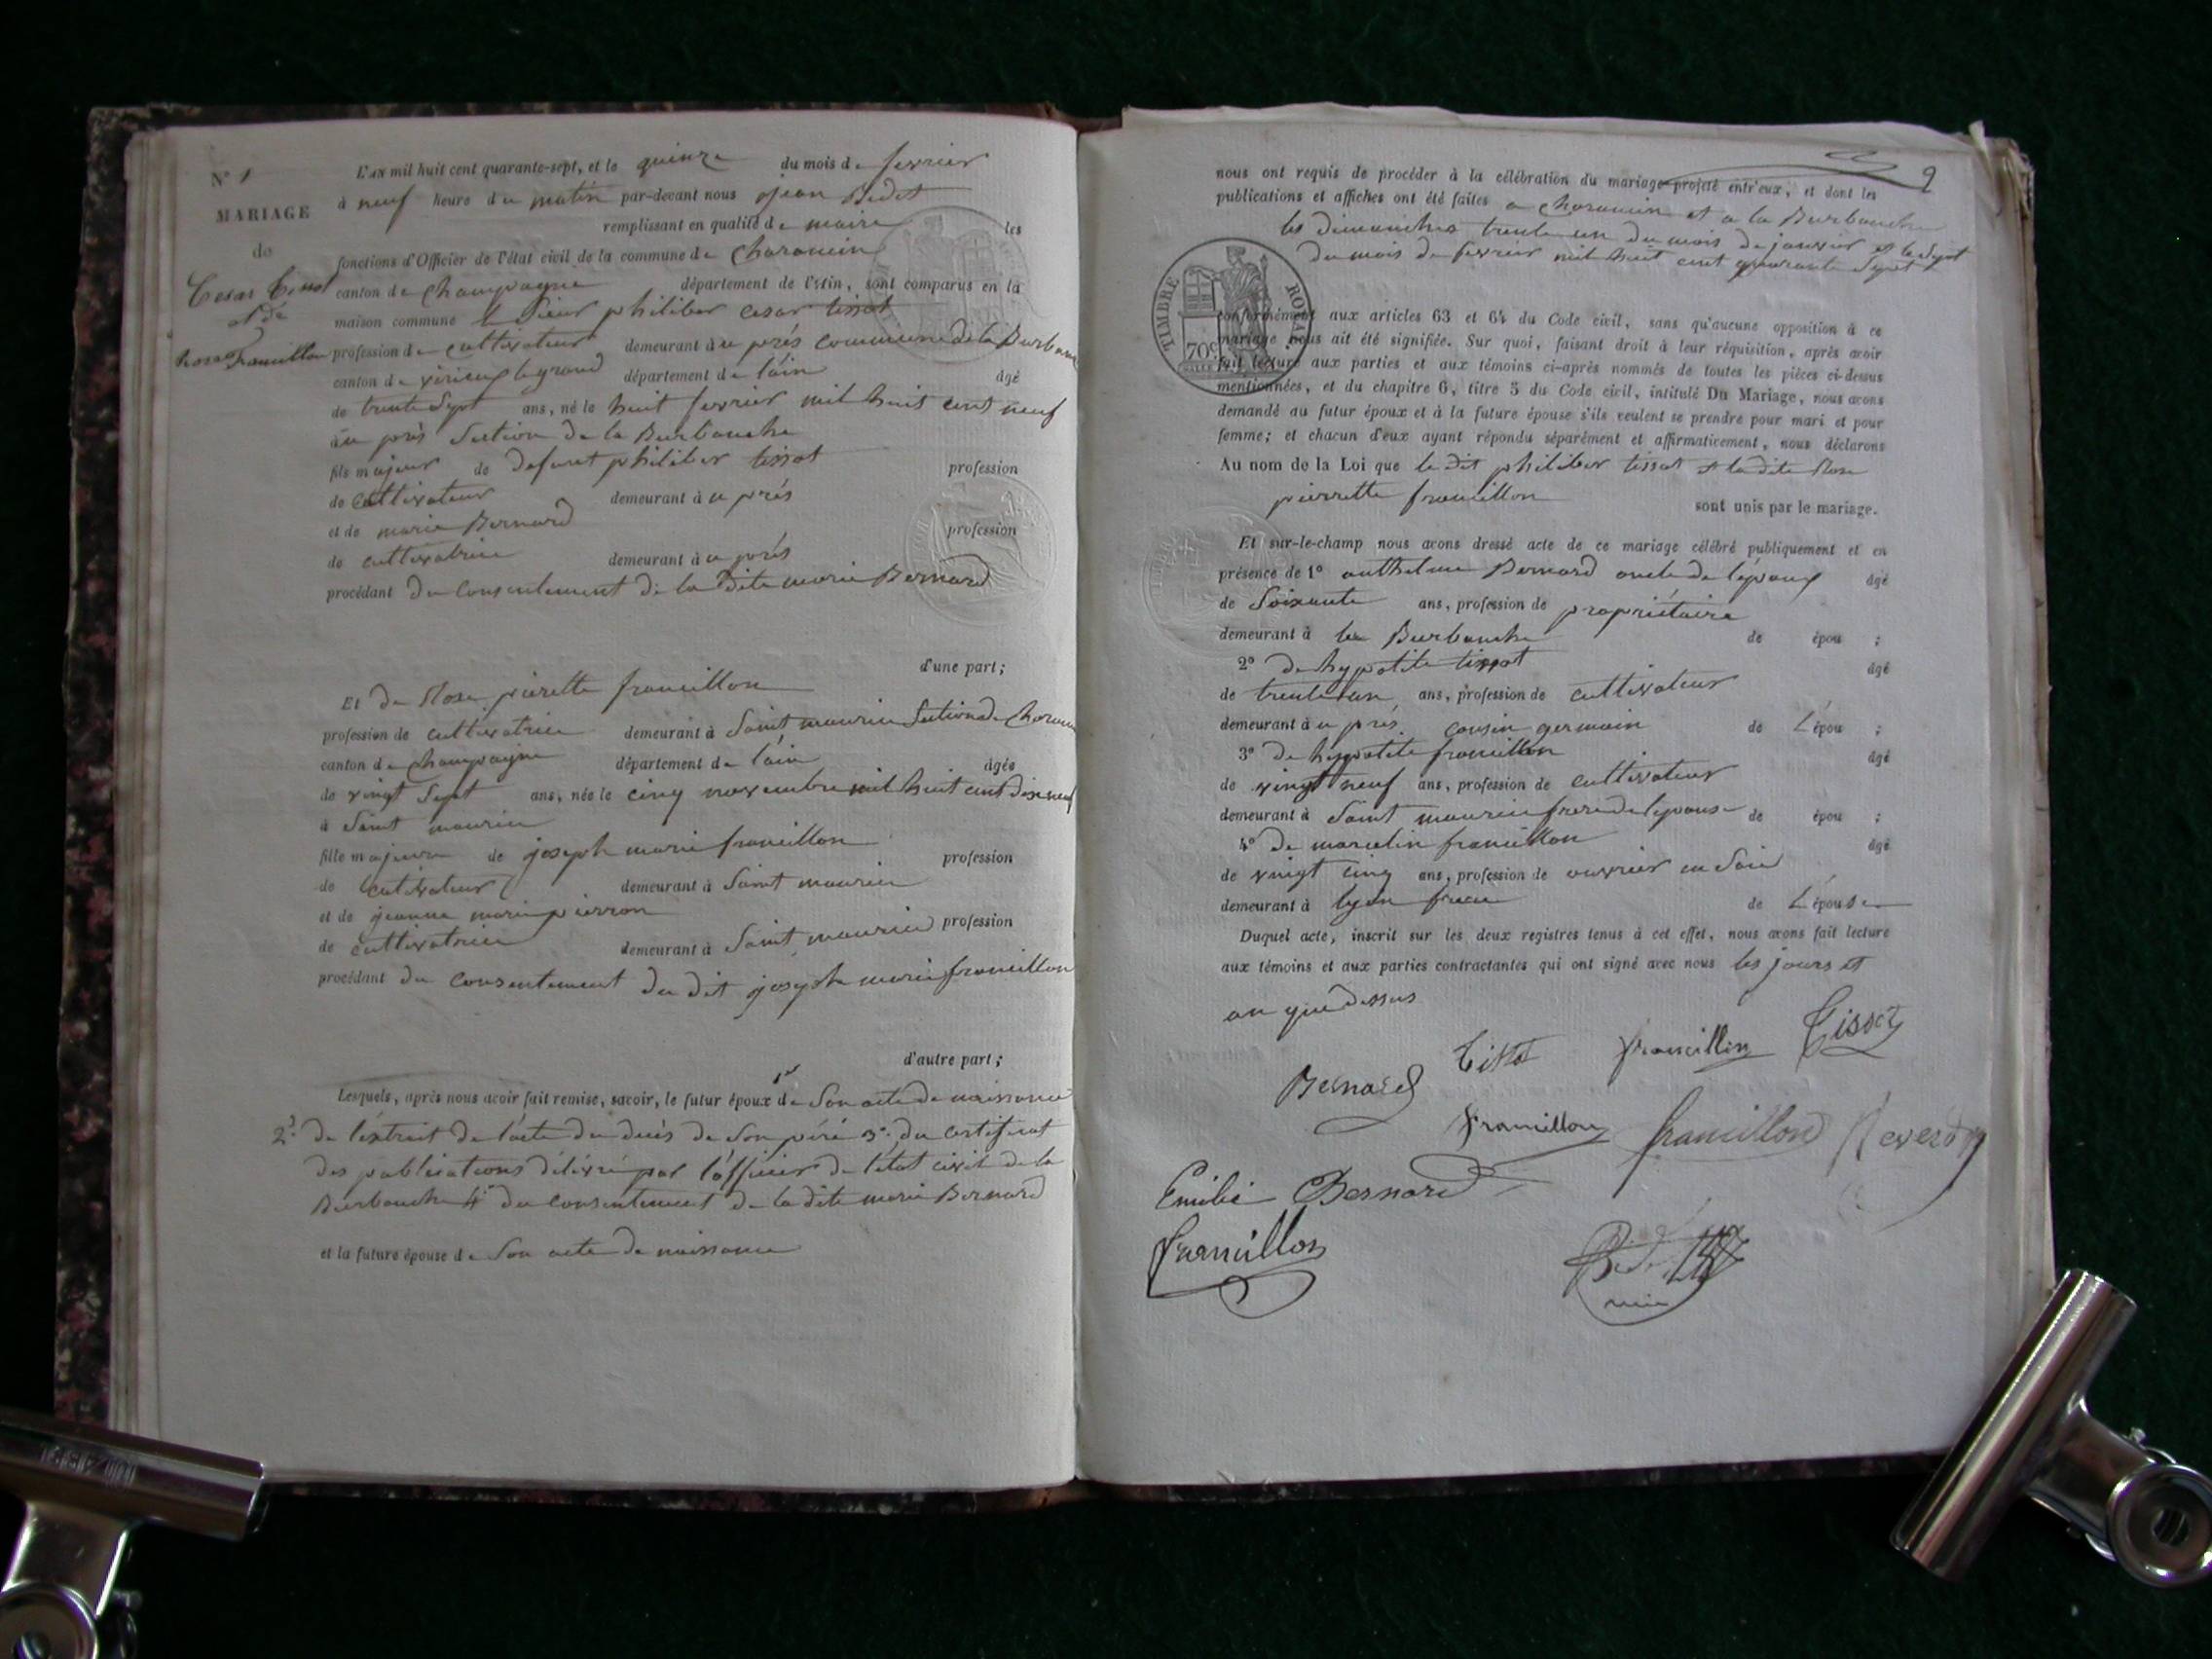 N° 1
MARIAGE
de
Cesar Tissot
et de
Rose francillon
L'an mil huit cent quarante-sept, et le quinze du mois de fevrier
à neuf heure du matin par-devant nous jean Bidet
remplissant en qualité de maire les
fonctions d'Officier de l'état civil de la commune de Charancin
canton de Champagne département de l'Ain, sont comparus en la
maison commune le Sieur philiber cesar tissot
profession de cultivateur demeurant à u prés commune de la Burbanche
canton de virieu le grand département de lain âgé
de trente Sept ans, né le huit fevrier mil huit cent neuf
à u prés Section de la Burbanche
fils majeur de defunt philiber tissot profession
de cultivateur demeurant à u prés
et de marie Bernard profession
de cultivatrice demeurant à u prés
procédant du consentement de la dite marie Bernard
d'une part;
Et de Rose pierette francillon
profession de cultivatrice demeurant à Saint maurice Section de Charancin
canton de Champagne département de lain âgée
de vingt Sept ans, née le cinq novembre mil huit cent dix neuf
à Saint maurice
fille majeure de joseph marie francillon profession
de cultivateur demeurant à Saint maurice
et de jeanne marie pierron profession
de cultivatrice demeurant à Saint maurice
procédant du consentement du dit joseph marie francillon
d'autre part;
Lesquels, après nous avoir fait remise, savoir, le futur époux 1° de Son acte de naissance
2° de lextrait de lacte du decès de Son pére 3° du certificat
des publications délivré par lofficier de letat civil de la
Burbanche 4° du consentement de la dite marie Bernard
et la future épouse de Son acte de naissance
9
nous ont requis de procéder à la célébration du mariage projeté entr'eux, et dont les
publications et affiches ont été faites a charancin et a la Burbanche
les dimanches trente un du mois de janvier et le Sept
du mois de fevrier mil huit cent quarante Sept
TIMBRE ROYAL
70c
conformément aux articles 63 et 64 du Code civil, sans qu'aucune opposition à ce
mariage nous ait été signifiée. Sur quoi, faisant droit à leur réquisition, après avoir
fait lecture aux parties et aux témoins ci-après nommés de toutes les pièces ci-dessus
mentionnées, et du chapitre 6, titre 5 du Code civil, intitulé Du Mariage, nous avons
demandé au futur époux et à la future épouse s'ils veulent se prendre pour mari et pour
femme; et chacun d'eux ayant répondu séparément et affirmativement, nous déclarons
Au nom de la Loi que le dit philiber tissot et la dite Rose
pierrette francillon sont unis par le mariage.
Et sur-le-champ nous avons dressé acte de ce mariage célébré publiquement et en
présence de 1° anthelme Bernard oncle de lépoux âgé
de Soixante ans, profession de propriétaire
demeurant à la Burbanche de épou ;
2° de hypolite tissot âgé
de trente un ans, profession de cultivateur
demeurant à u prés cousin germain de L'épou ;
3° de hypolite francillon âgé
de vingt neuf ans, profession de cultivateur
demeurant à Saint maurice frere de lepouse de épou ;
4° de marcelin francillon âgé
de vingt cinq ans, profession de ouvrier en Soie
demeurant à lyon frere de L'épouse
Duquel acte, inscrit sur les deux registres tenus à cet effet, nous avons fait lecture
aux témoins et aux parties contractantes qui ont signé avec nous les jours et
an que dessus
Bernard Tissot francillon Tissot
francillon francillon Reverdy
Emilie Bernard
francillon Bidet